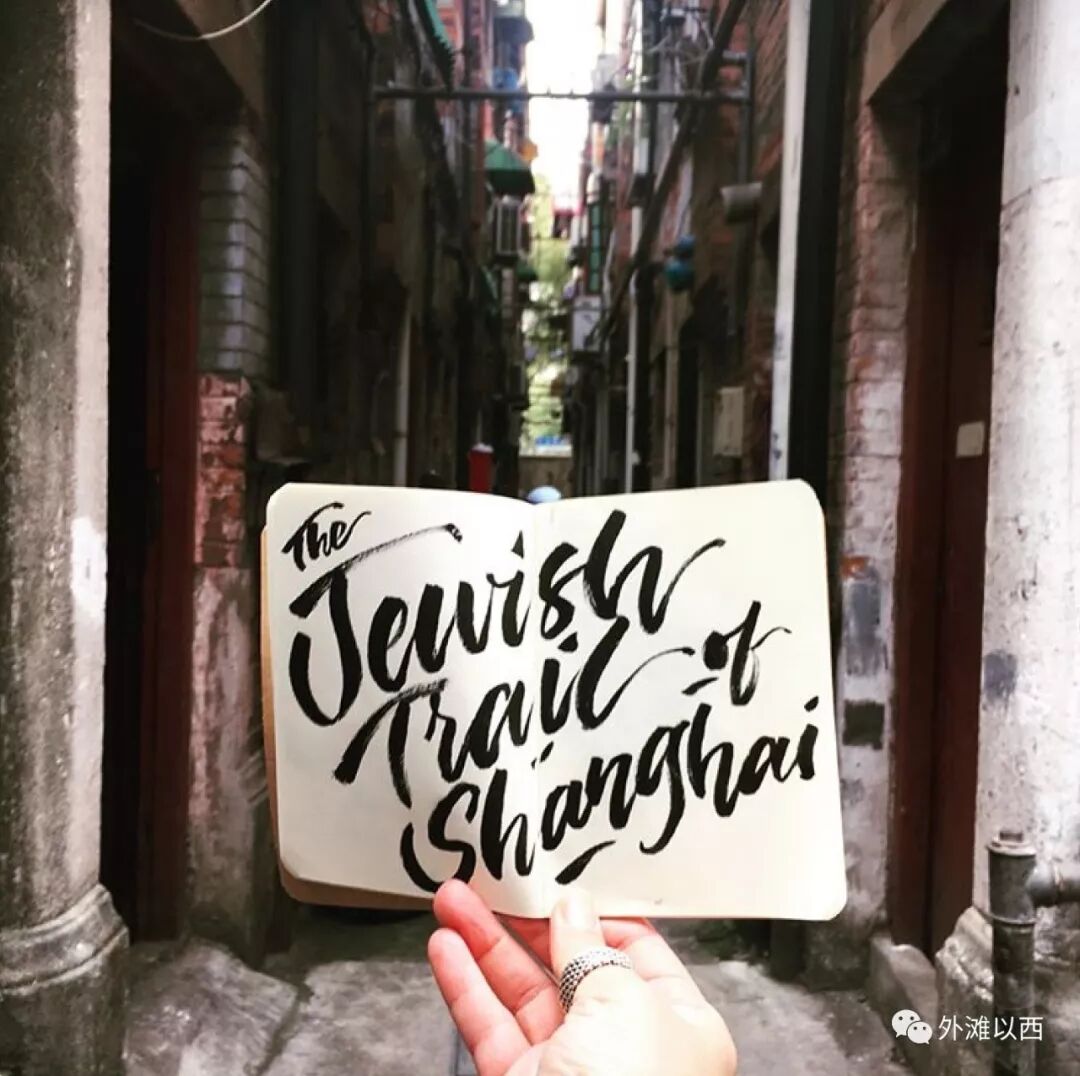 The
Jewish
Trail of
Shanghai
外滩以西